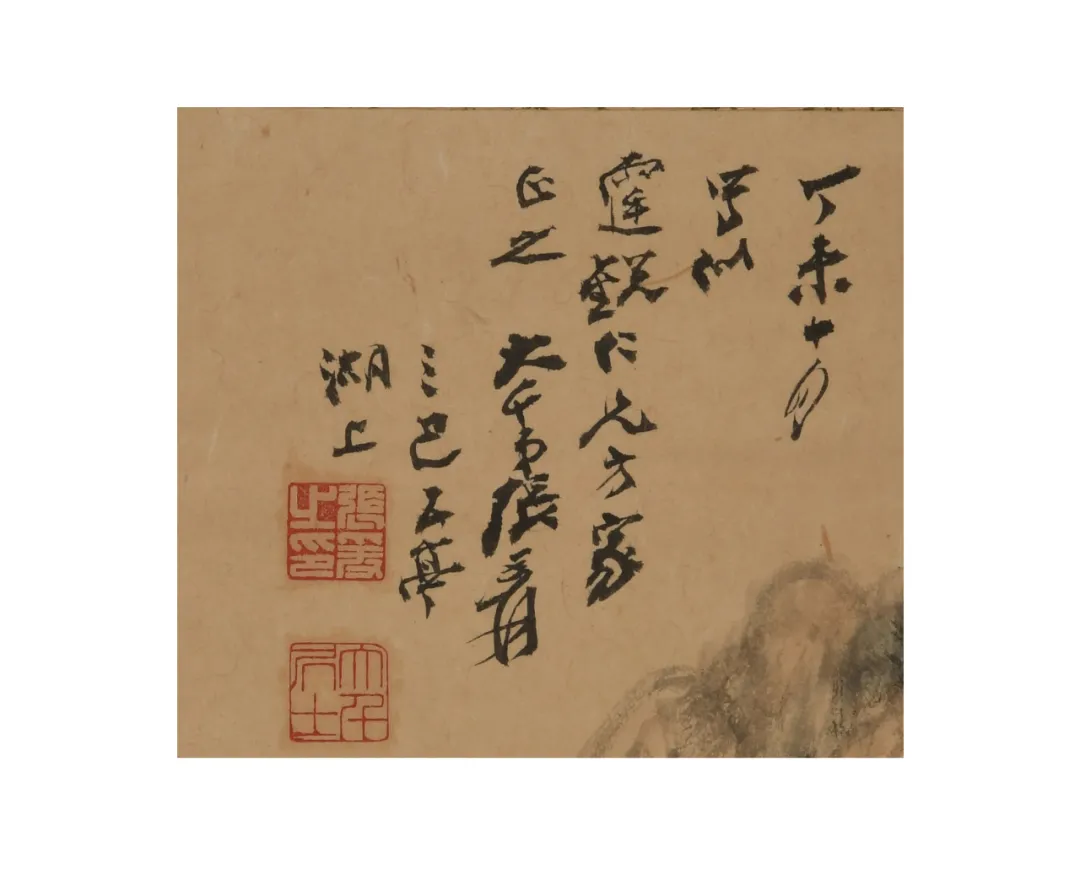 丁未十月
寫似
霆銳仁兄方家
正之 大千弟張爰
三巴五亭
湖上
張爰之印
大千居士